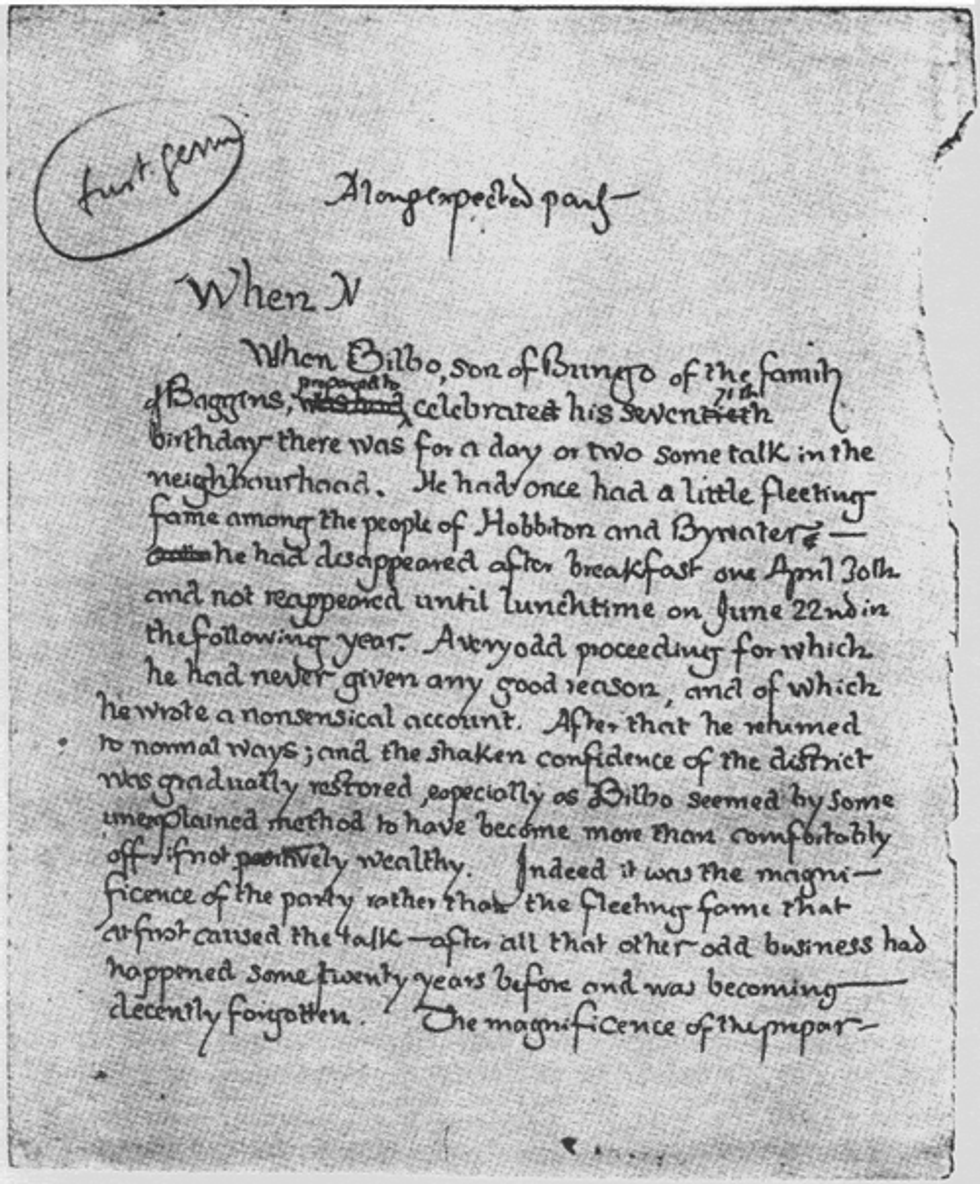 first germ
A long expected party
When N
When Bilbo, son of Bungo of the family
prepared to
71st
of Baggins, was had celebrated his seventieth
birthday there was for a day or two some talk in the
neighbourhood. He had once had a little fleeting
fame among the people of Hobbiton and Bywater —
he had disappeared after breakfast one April 30th
and not reappeared until lunchtime on June 22nd in
the following year. A very odd proceeding for which
he had never given any good reason, and of which
he wrote a nonsensical account. After that he returned
to normal ways; and the shaken confidence of the district
was gradually restored, especially as Bilbo seemed by some
unexplained method to have become more than comfortably
off, if not positively wealthy. Indeed it was the magni-
ficence of the party rather than the fleeting fame that
at first caused the talk — after all that other odd business had
happened some twenty years before and was becoming
decently forgotten. The magnificence of the prepar-